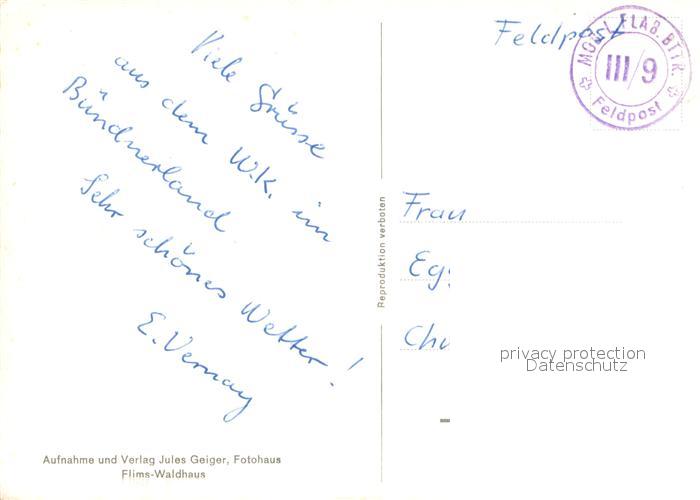 Viele Grüsse
aus dem W.K. im
Bündnerland
Sehr schönes Wetter!
E. Vernay
Aufnahme und Verlag Jules Geiger, Fotohaus
Flims-Waldhaus
Reproduktion verboten
Feldpost
MOB. L. FLAB. BTTR.
III/9
Feldpost
Frau
Eg
Chu
privacy protection
Datenschutz